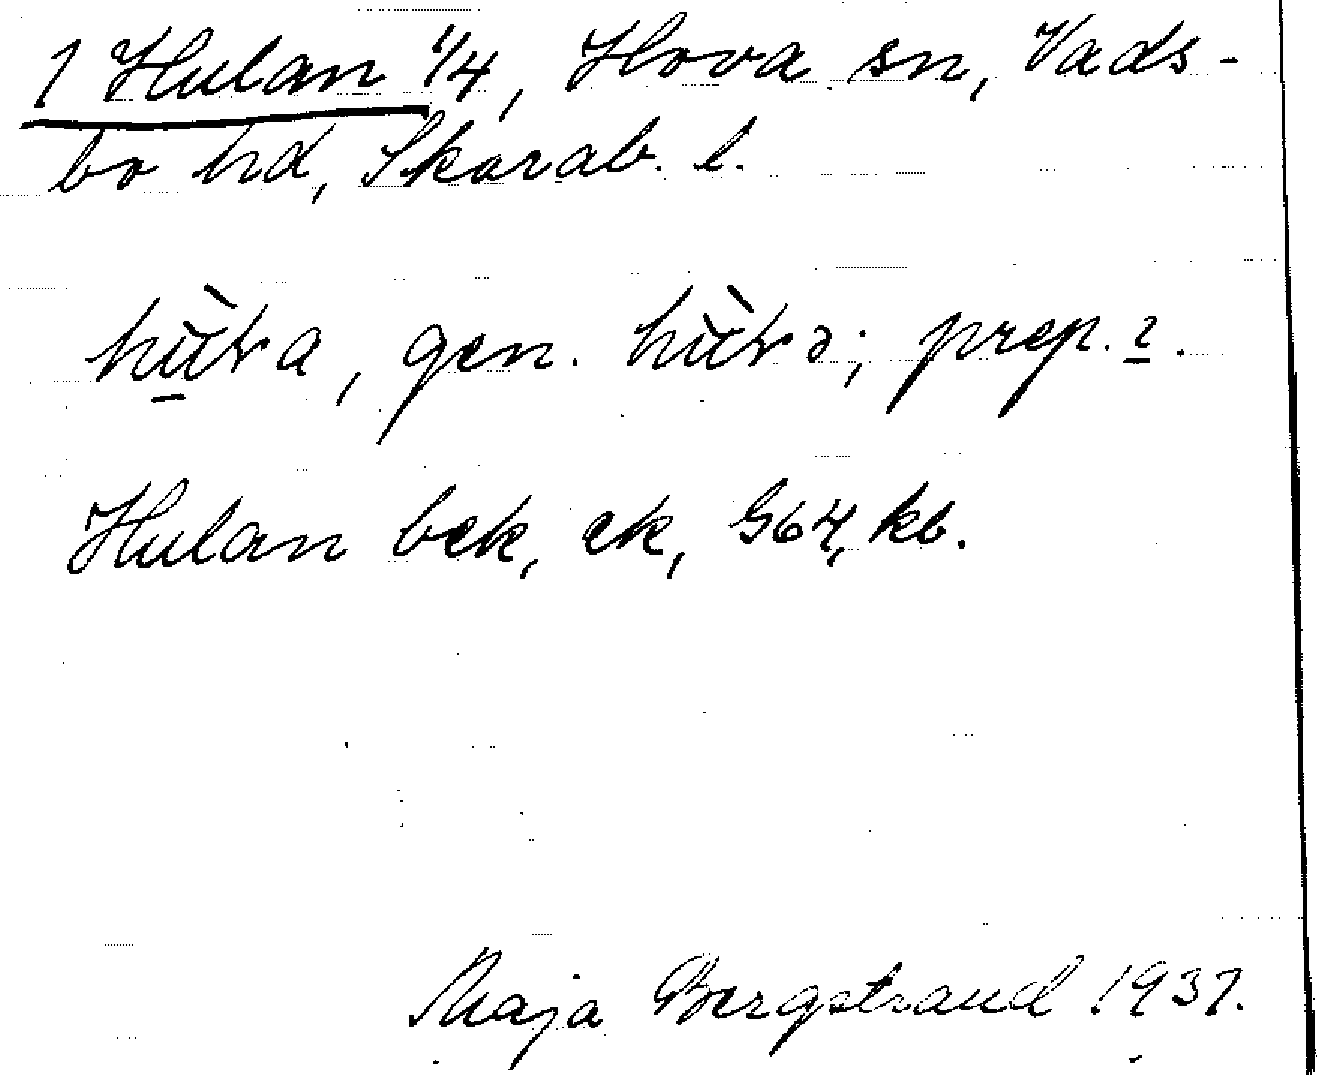 1 Hulan 1/4, Hova sn, Vads-
bo hd, Skarab. l.
gen. prep.
Hulan bek, ek, G64, kb.
Maja Bergstrand 1937.